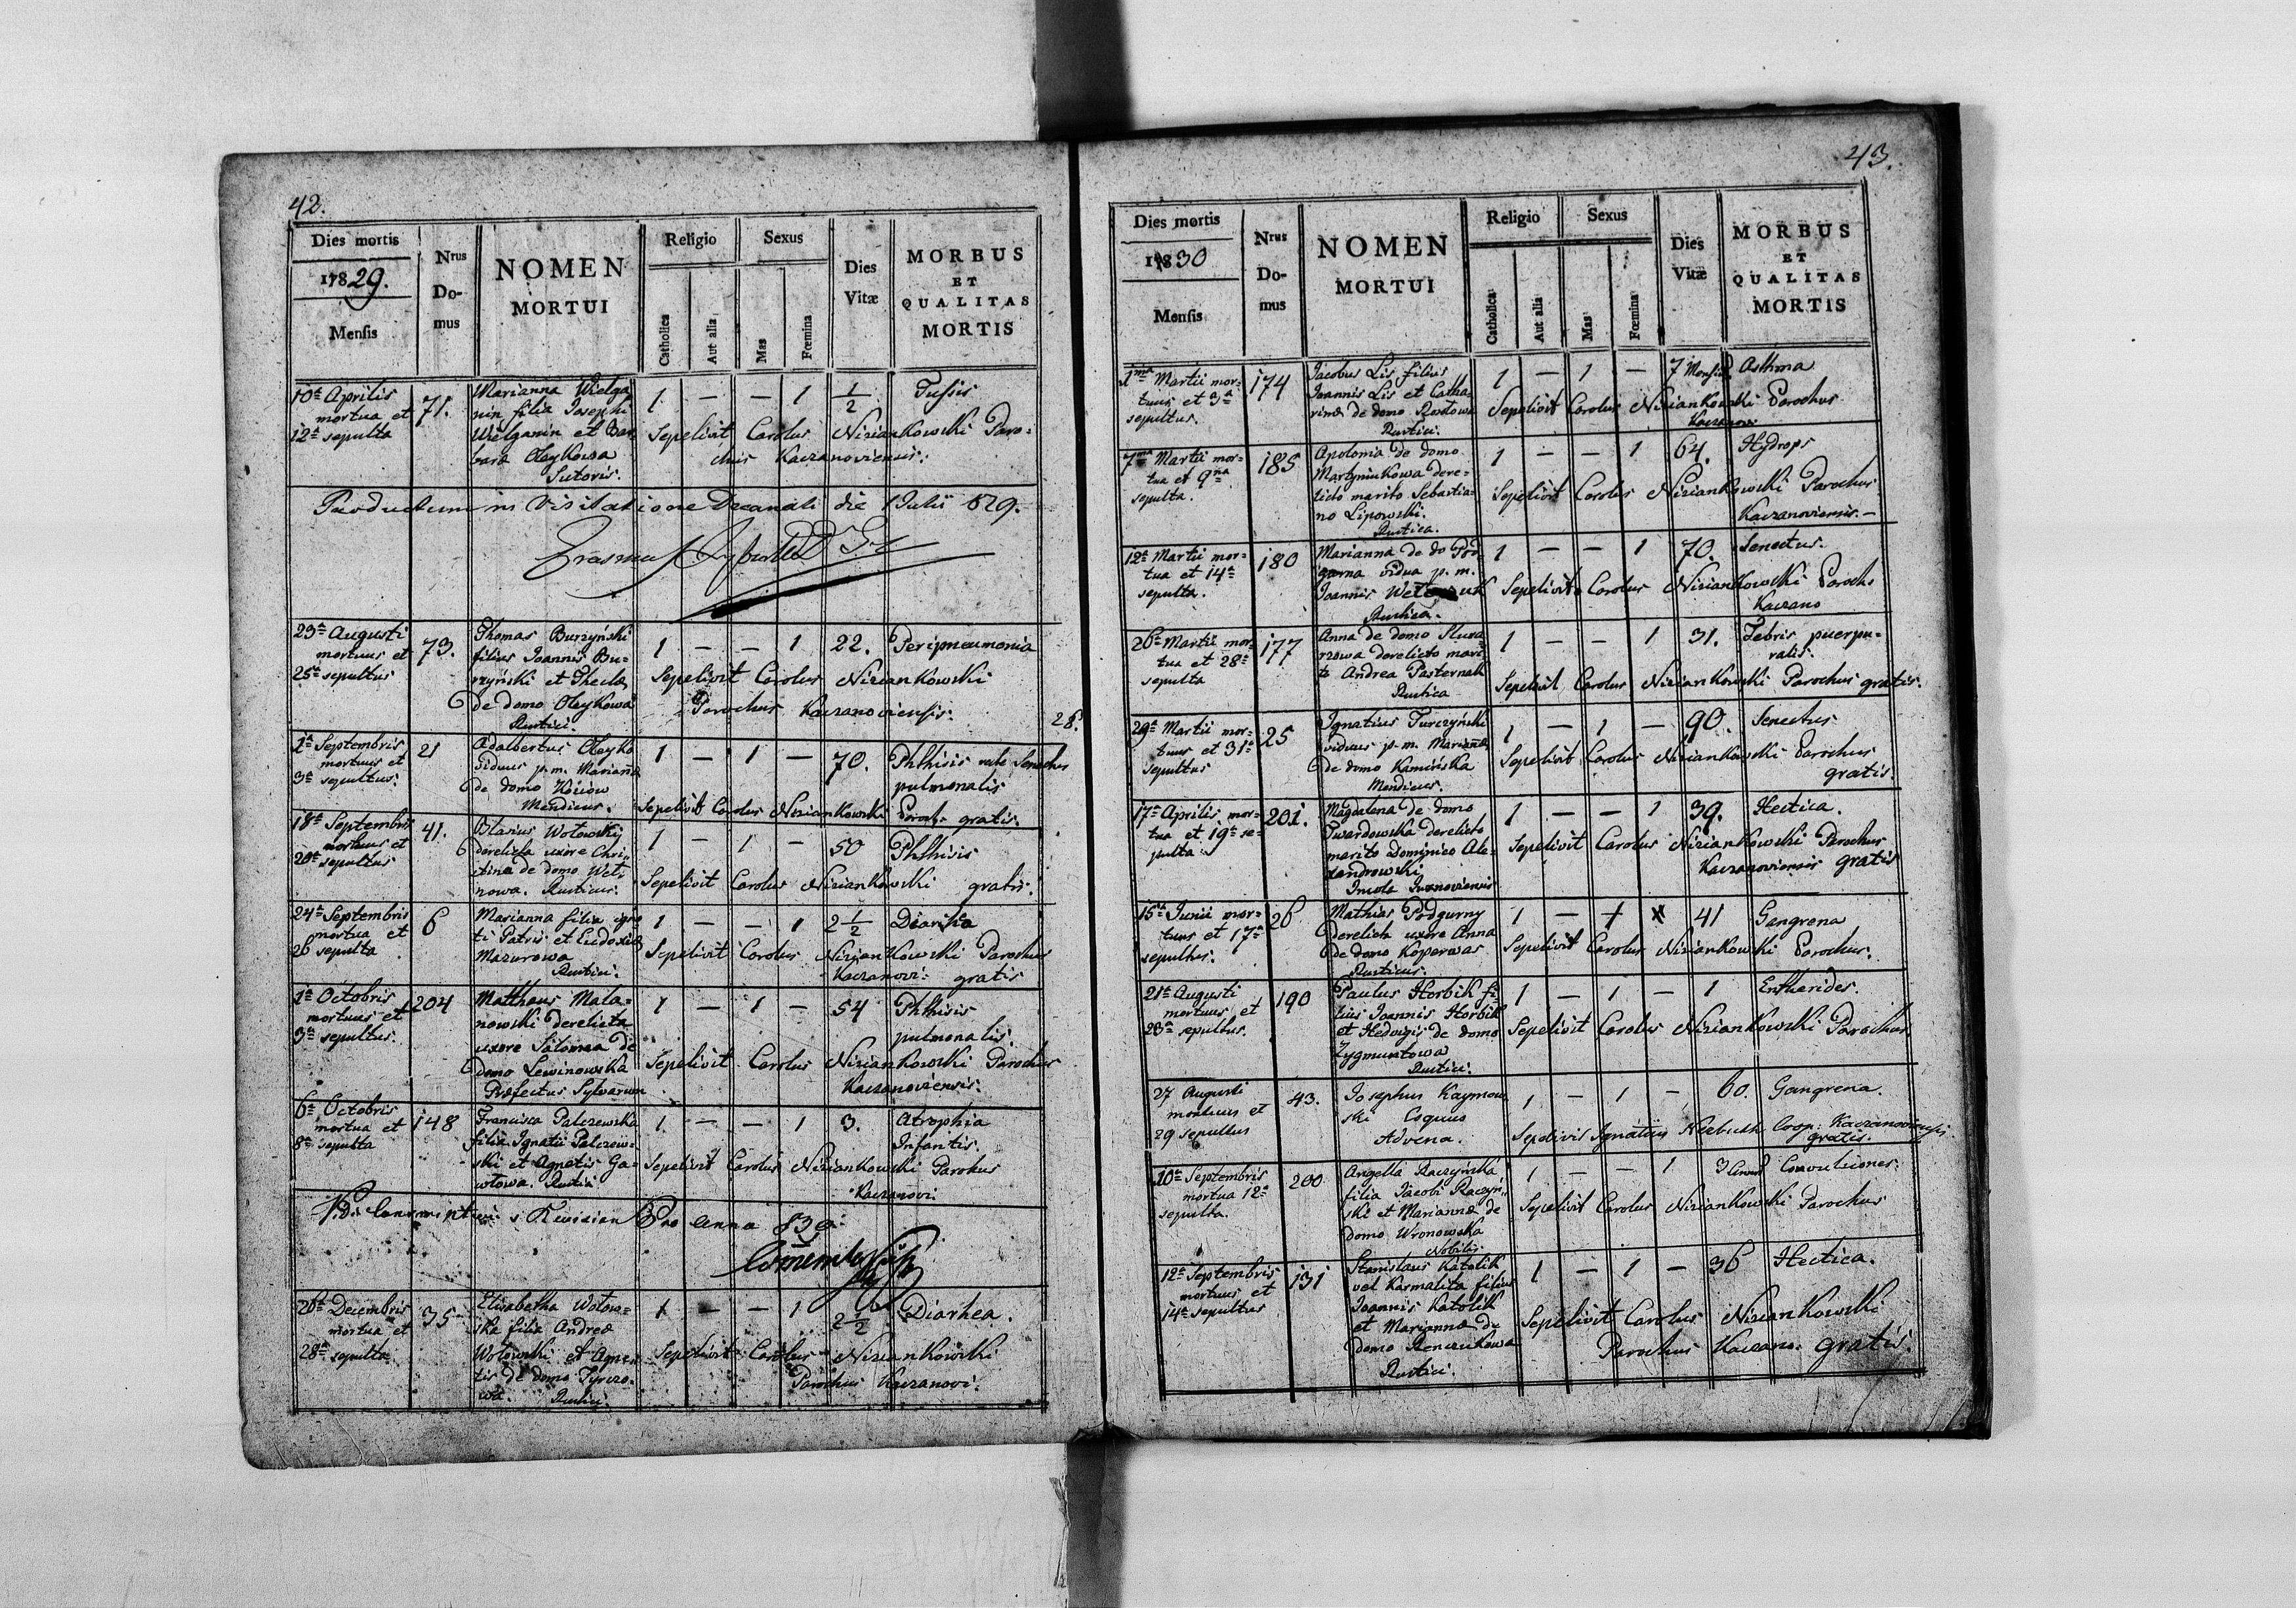 42.
Dies mortis
1829.
Mensis
Nrus
Do-
mus
NOMEN
MORTUI
Religio
Catholica
Aut alia
Sexus
Mas
Fœmina
Dies
Vitæ
MORBUS
ET
QUALITAS
MORTIS
10a Aprilis
mortua et
12a sepulta
71.
Marianna Wielga
nin filia Josephi
Wielganin et Bar
bara Oleykowa
Sutoris.
1 — — 1 1/2 Tussis
Sepelivit Carolus Nizankowski Paro-
chus Kaczanoviensis.
Productum in Visitatione Decanali die 1 Julii 829.
Erasmus
23a Augusti
mortuus et
25a sepultus
73.
Thomas Burzyński
filius Joannis Bu-
rzyński et Theclæ
de domo Oleykowa
Rustici.
1 — — 1 22. Peripneumonia
Sepelivit Carolus Niziankowski
Parochus Kaczanoviensis.
28.
1a Septembris
mortuus et
3a sepultus.
21
Adalbertus Oleyko
viduus p.m. Marianna
de domo Koziow
Mendicus.
1 — 1 — 70. Phthisis Senectus
pulmonalis
Sepelivit Carolus Niziankowski Paroch. gratis.
18a Septembris
mortuus et
20a sepultus
41.
Blasius Wolowski
derelicta uxore Chri-
stina de domo Weli
nowa. Rusticus.
1 — 1 — 50 Phthisis
Sepelivit Carolus Niziankowski gratis.
24a Septembris
mortua et
26 sepulta
6
Marianna filia igno
ti Patris et Ludovicæ
Mazurowa
Rustici.
1 — — 1 2 1/2 Diarhea
Sepelivit Carolus Niziankowski Parochus
Kaczanovi: gratis
1a Octobris
mortuus et
3a sepultus.
204
Mathæus Mala-
nowski derelicta
uxore Salomea de
domo Lewinowska
Præfectus Sylvarum
1 — 1 — 54 Phthisis
pulmonalis.
Sepelivit Carolus Niziankowski Parochus
Kaczanoviensis.
6a Octobris
mortua et
8a sepulta
148
Francisca Palczewska
filia Ignatii Palczew-
ski et Agnetis Ga-
wlowa. Rustici
1. — — 1 3. Atrophia
Infantis.
Sepelivit Carolus Niziankowski Parokus
Kaczanovi.
Revision Pro anno 830.
26a Decembris
mortua et
28a sepulta
35
Elisabetha Wolow-
ska filia Andreæ
Wolowski et Agne-
tis de domo Tyrczo-
wa. Rustici.
1 — — 1 2 1/2 Diarhea.
Sepelivit Carolus Niziankowski
Parochus Kaczanovi.
43.
Dies mortis
1830
Mensis
Nrus
Do-
mus
NOMEN
MORTUI
Religio
Catholica
Aut alia
Sexus
Mas
Fœmina
Dies
Vitæ
MORBUS
ET
QUALITAS
MORTIS
1ma Martii mor-
tuus et 3a
sepultus.
174
Jacobus Lis filius
Joannis Lis et Catha-
rinæ de domo Rostowa
Rustici.
1 — 1 — 7 Mensium Asthma
Sepelivit Carolus Niziankowski Parochus
Kaczanov.
7ma Martii mor-
tua et 9na
sepulta.
185
Apolonia de domo
Martyniukowa dere-
licto marito Sebastia-
no Lipowski.
Rustica.
1 — — 1 64. Hydrops
Sepelivit Carolus Niziankowski Parochus
Kaczanoviensis.—
12a Martii mor-
tua et 14a
sepulta.
180
Marianna de do Pod
gurna vidua p.m.
Joannis
Rustica.
1 — — 1 70. Senectus.
Sepelivit Carolus Niziankowski Paroch
Kaczano
26a Martii mor-
tua et 28a
sepulta
177
Anna de domo Slusa
rzowa derelicto mari-
to Andrea Pasternak
Rustica
1 — — 1 31. Febris puerpu-
ralis.
Sepelivit Carolus Niziankowski Parochus gratis.
29a Martii mor-
tuus et 31a
sepultus
25
Ignatius Turczyński
viduus p.m. Mariannæ
de domo Kamińska
Mendicus.
1 — 1 — 90. Senectus
Sepelivit Carolus Niziankowski Parochus
gratis.
17a Aprilis mor-
tua et 19a se-
pulta.
201.
Magdalena de domo
Twardowska derelicto
marito Dominico Ale-
xandrowski
Incola Iwanoviensis
1 — — 1 39. Hectica.
Sepelivit Carolus Niziankowski Parochus
Kaczanoviensis gratis
15a Junii mor-
tuus et 17a
sepultus.
26
Mathias Podgurny
derelicta uxore Anna
de domo Koperwas
Rusticus.
1 — 1 41 Gangrena
Sepelivit Carolus Niziankowski Parochus.
21a Augusti
mortuus et
23a sepultus.
190
Paulus Horbik fi-
lius Joannis Horbik
et Hedvigis de domo
Zygmuntowa
Rustici.
1 — 1 — 1 Entherides.
Sepelivit Carolus Niziankowski Parochus
27 Augusti
mortuus et
29 sepultus
43.
Josephus Kaymow
ski Coquus
Advena.
1 — 1 — 60. Gangrena.
Sepelivit Ignatius Coop. Kaczanoviensis
gratis.
10a Septembris
mortua 12a
sepulta.
200
Angella Raczyńska
filia Jacobi Raczyń-
ski et Mariannæ de
domo Wronowska
Nobilis.
1 — — 1 3 Convultiones.
Sepelivit Carolus Niziankowski Parochus
12a Septembris
mortuus et
14a sepultus
131
Stanislaus Katolik
vel Karmalita filius
Joannis Katolik
et Mariannæ de
domo Renczukowa
Rustici.
1 — 1 — 36 Hectica.
Sepelivit Carolus Niziankowski
Parochus Kaczano: gratis.